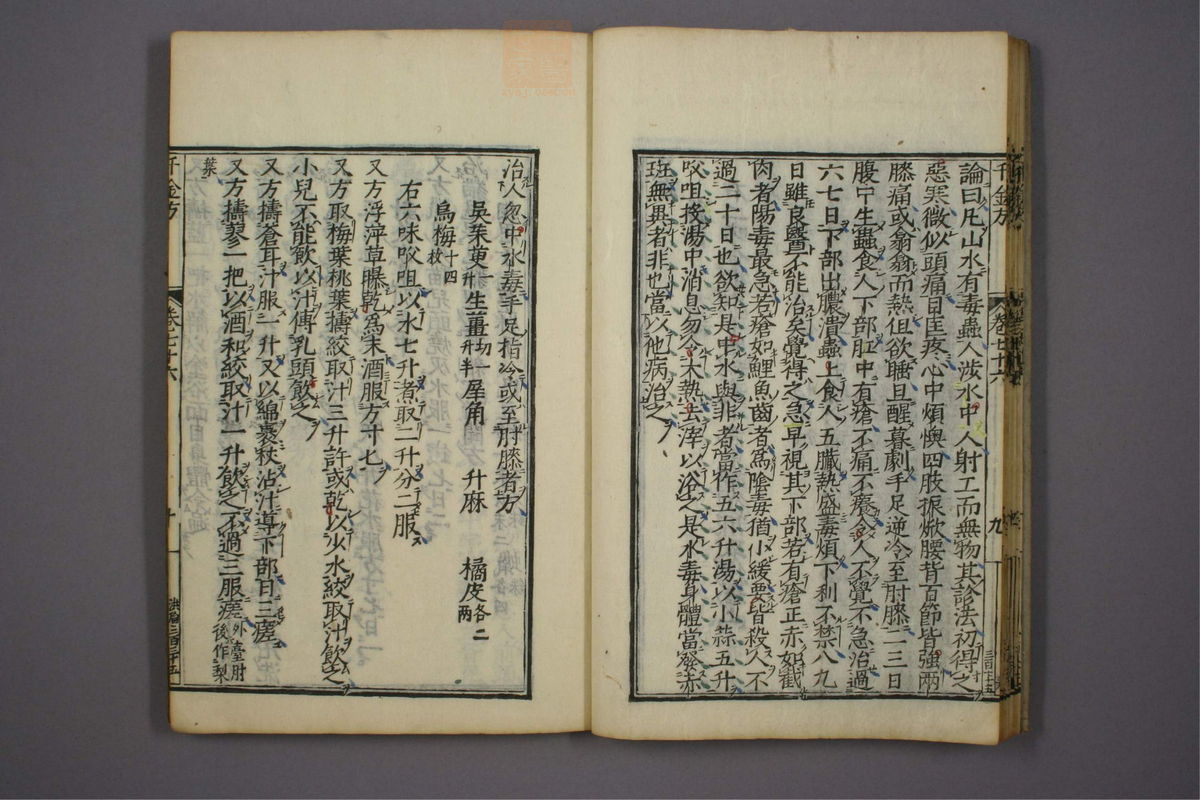 論曰凡山水有毒蟲人涉水中人射工而無物其診法初得之
惡寒微似頭痛目匡疼心中煩懊四肢振焮腰背百節皆強兩
膝痛或翕翕而熱但欲睡旦醒暮劇手足逆冷至肘膝二三日
腹中生蟲食人下部肛中有瘡不痛不癢令人不覺不急治過
六七日下部出膿潰蟲上食人五臟熱盛毒煩下利不禁八九
日雖良醫不能治矣覺得之急早視其下部若有瘡正赤如截
肉者陽毒最急若瘡如鯉魚齒者爲陰毒猶小緩要皆殺人不
過二十日也欲知是中水與非者當作五六升湯以小蒜五升
㕮咀投湯中消息勿令大熱去滓以浴之是水毒身體當發赤
斑無異者非也當以他病治之
千金方
卷七十六
九
治人忽中水毒手足指冷或至肘膝者方
吳茱萸一升 生薑切一升半 犀角 升麻 橘皮各二兩
烏梅十四枚
右六味㕮咀以水七升煮取二升分二服
又方浮萍草曝乾爲末酒服方寸匕
又方取梅葉桃葉擣絞取汁三升許或乾以少水絞取汁飲之
小兒不能飲以汁傅乳頭飲之
又方擣蒼耳汁服一升又以綿裹杖沾汁導下部日三瘥
又方擣蓼一把以酒和絞取汁一升飲之不過三服瘥外臺肘後作梨
葉
千金方
卷七十六
十